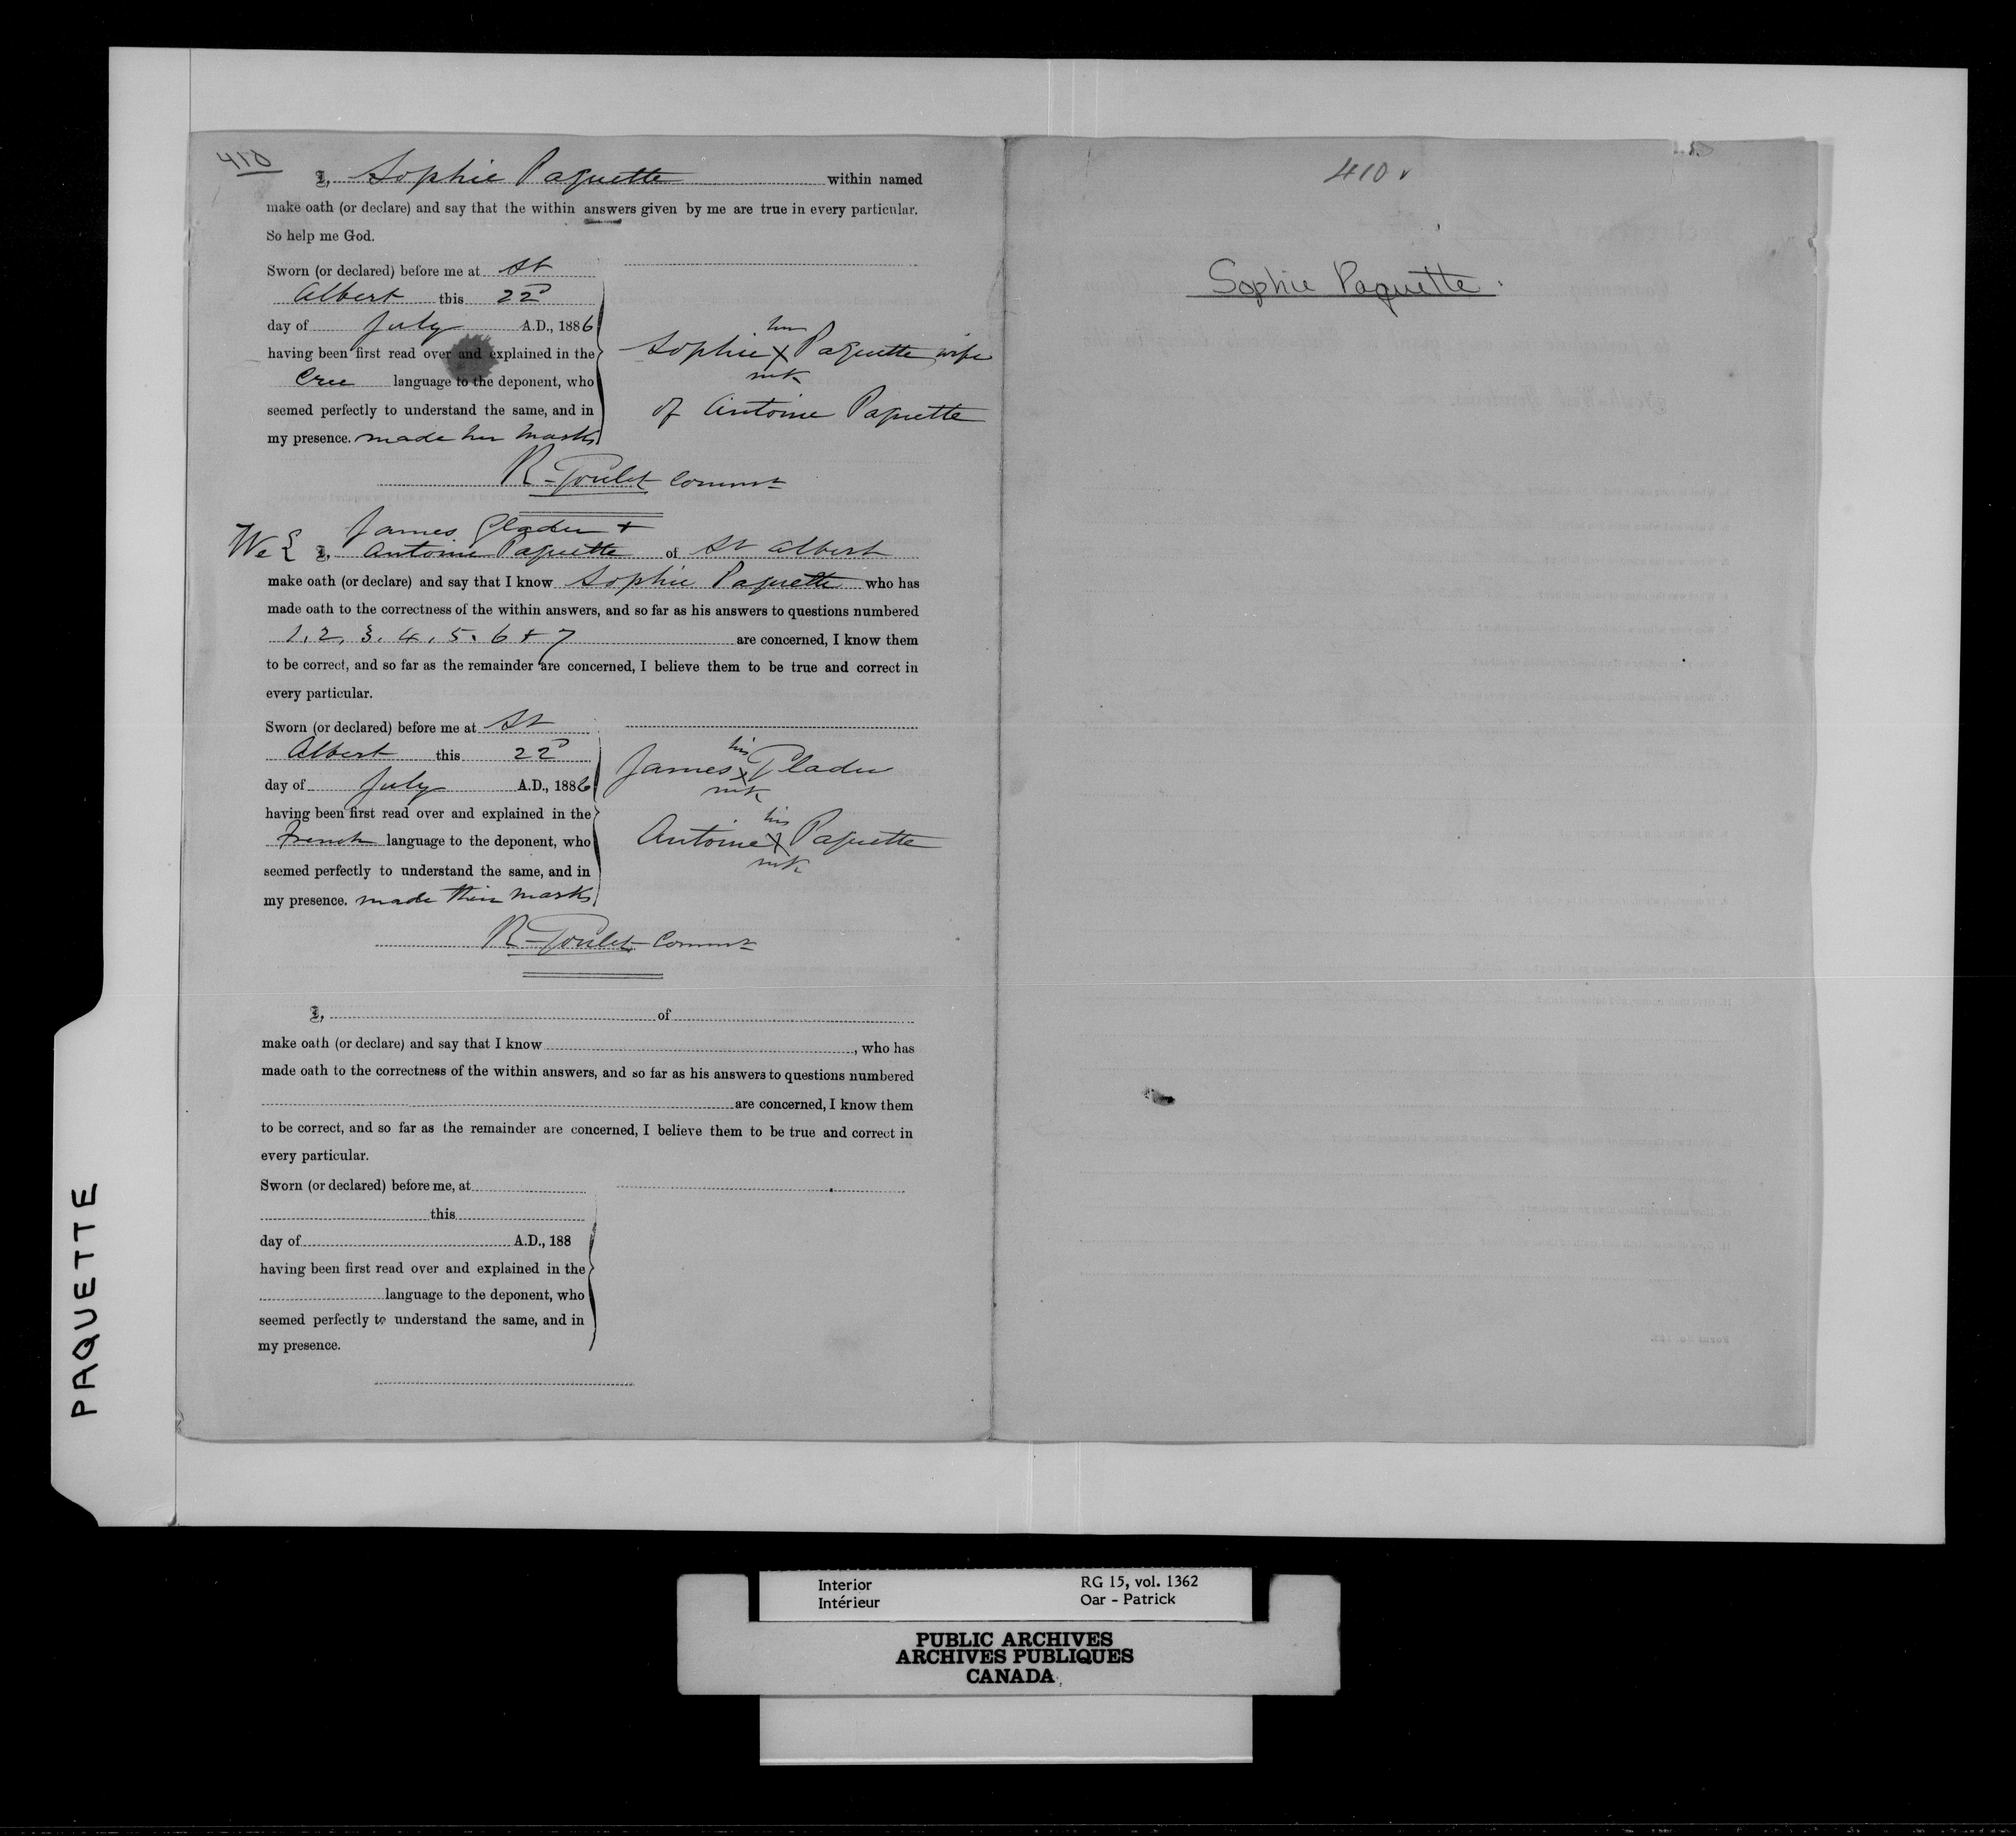 410
I, Sophie Paquette within named
make oath (or declare) and say that the within answers given by me are true in every particular.
So help me God.
Sworn (or declared) before me at St
Albert this 22D
day of July A.D., 1886
having been first read over and explained in the
Cree language to the deponent, who
seemed perfectly to understand the same, and in
my presence. made her marks
her
Sophie X Paquette wife
mk
of Antoine Paquette
R. Goulet Commr
James Gladu +
We { I, Antoine Paquette of St Albert
make oath (or declare) and say that I know Sophie Paquette who has
made oath to the correctness of the within answers, and so far as his answers to questions numbered
1, 2, 3, 4, 5, 6 + 7 are concerned, I know them
to be correct, and so far as the remainder are concerned, I believe them to be true and correct in
every particular.
Sworn (or declared) before me at St
Albert this 22D
day of July A.D., 1886
having been first read over and explained in the
French language to the deponent, who
seemed perfectly to understand the same, and in
my presence. made their marks
his
James X Gladu
mk
his
Antoine X Paquette
mk
R. Goulet Commr
I, of
make oath (or declare) and say that I know , who has
made oath to the correctness of the within answers, and so far as his answers to questions numbered
are concerned, I know them
to be correct, and so far as the remainder are concerned, I believe them to be true and correct in
every particular.
Sworn (or declared) before me, at
this
day of A.D., 188
having been first read over and explained in the
language to the deponent, who
seemed perfectly to understand the same, and in
my presence.
410 v
Sophie Paquette.
PAQUETTE
Interior
Intérieur
RG 15, vol. 1362
Oar - Patrick
PUBLIC ARCHIVES
ARCHIVES PUBLIQUES
CANADA